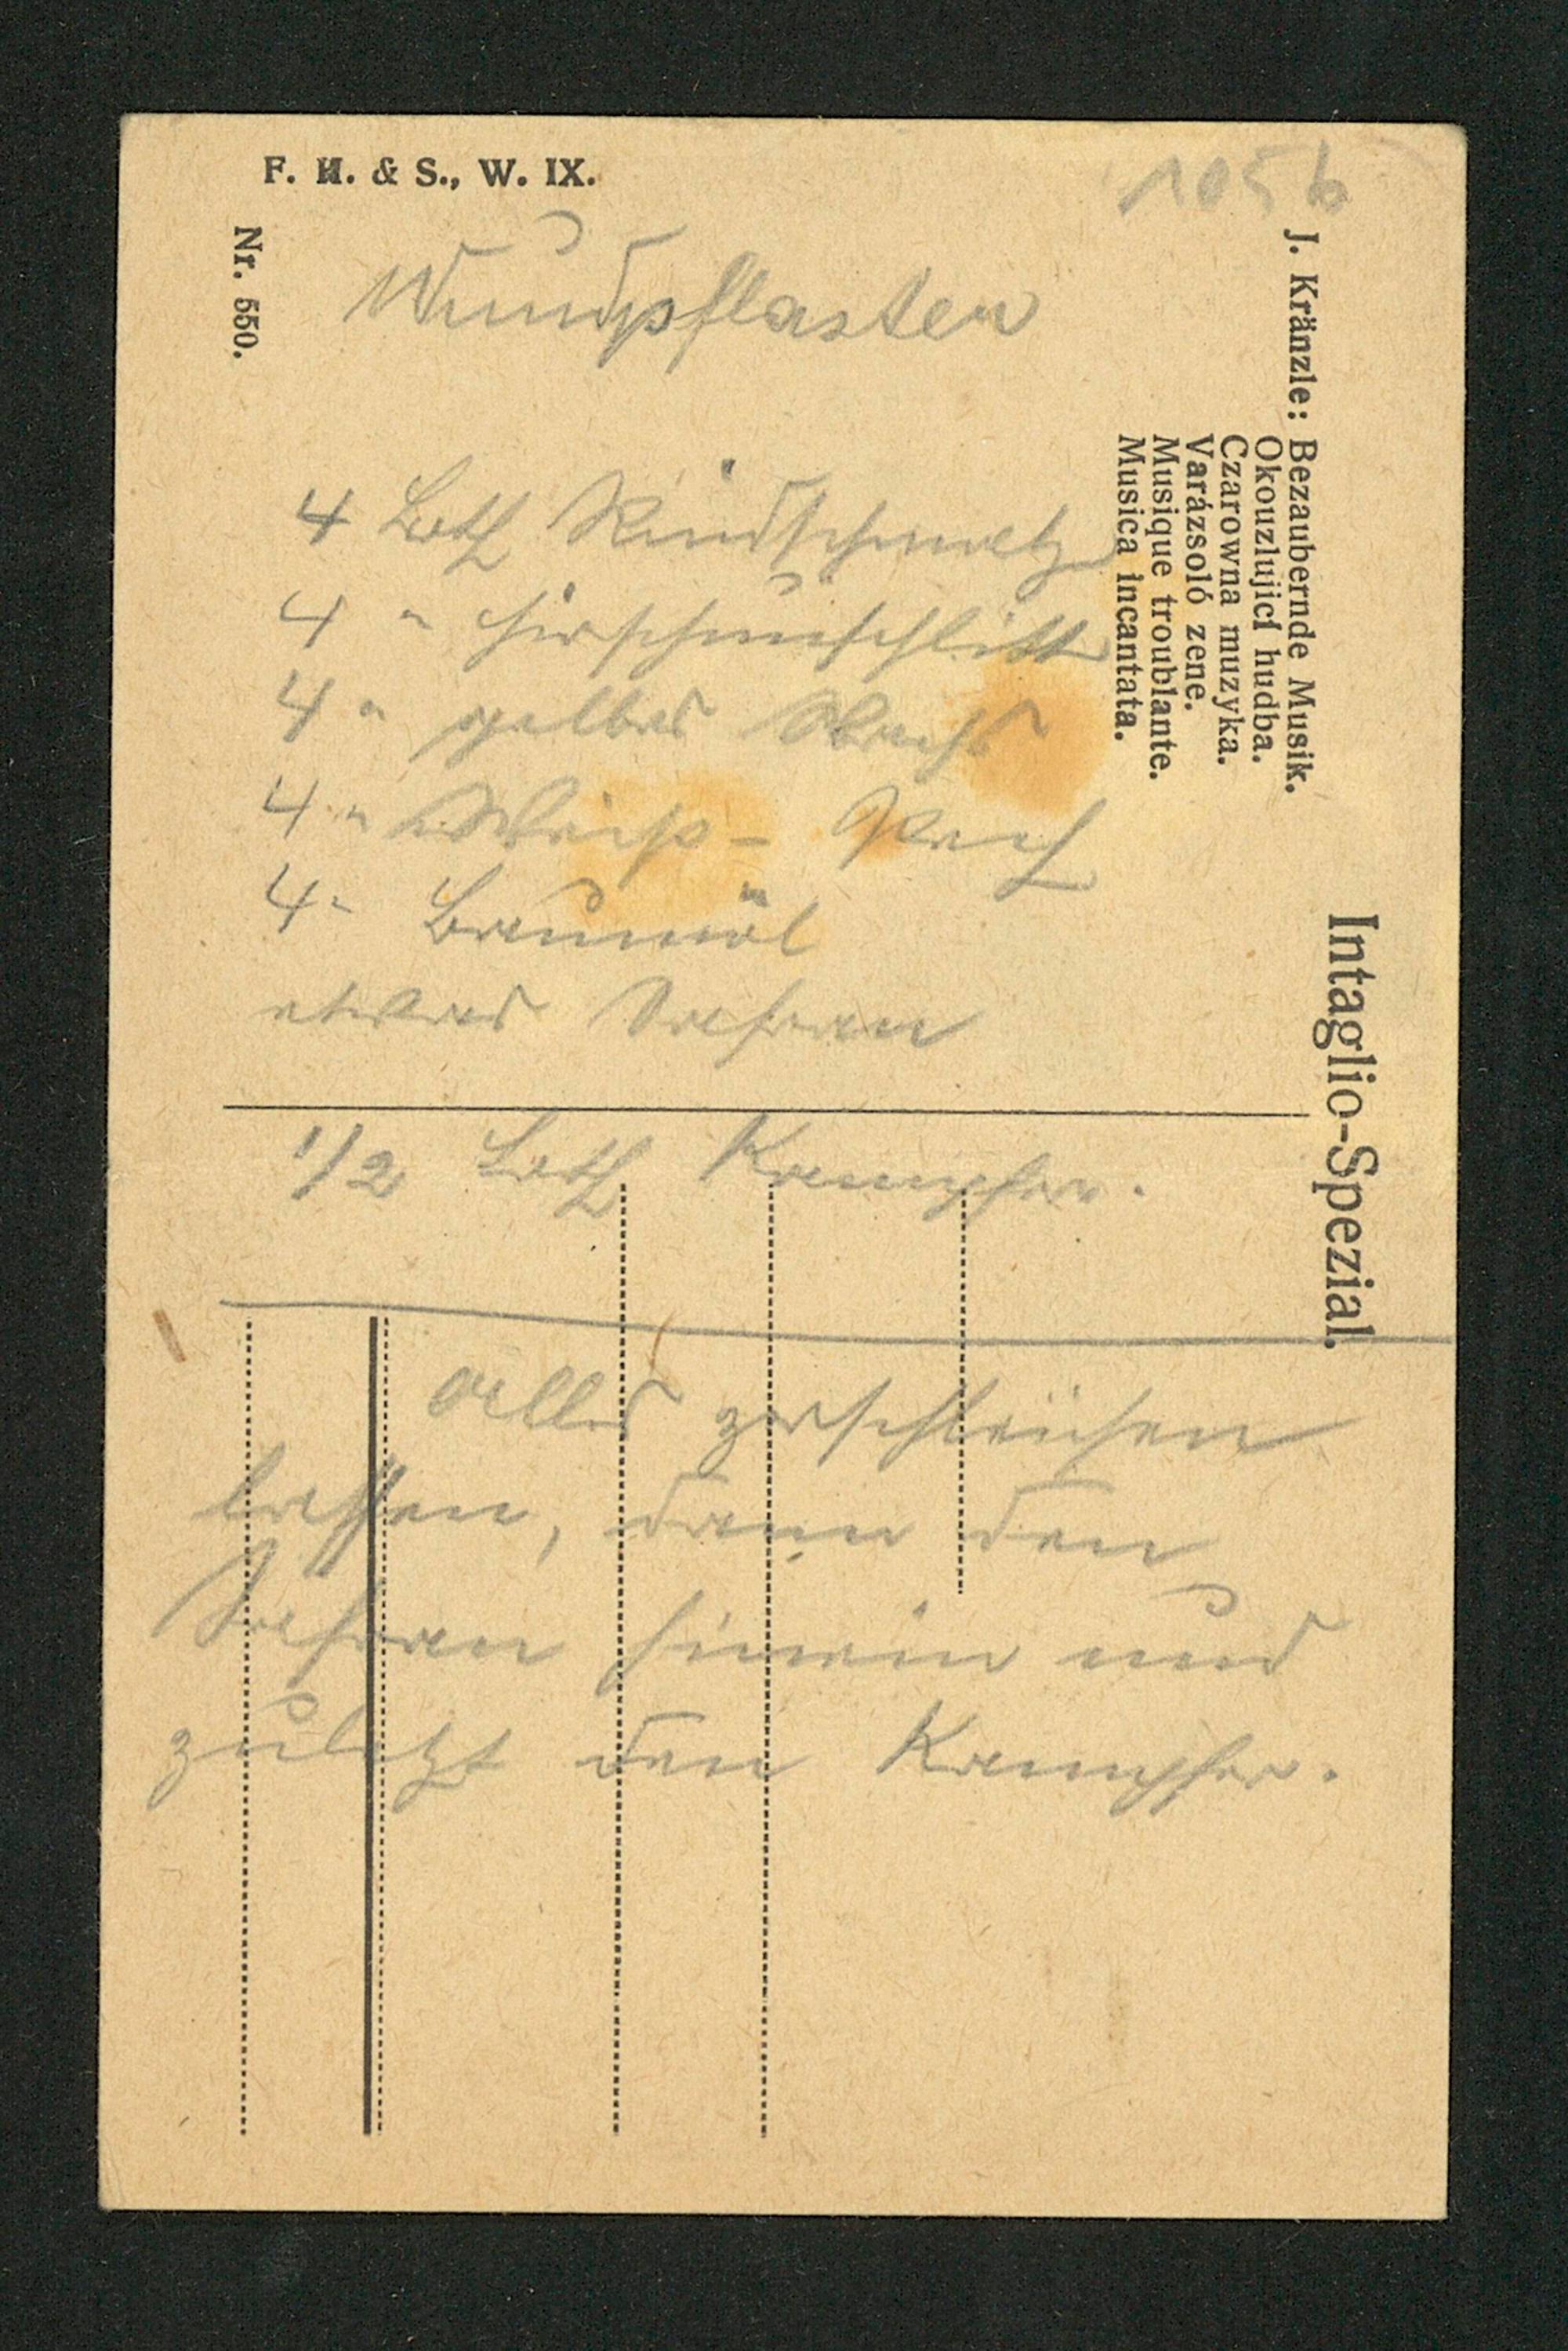 F. H. & S., W. IX.
Nr. 550.
1056
J. Kränzle: Bezaubernde Musik.
Okouzlujicí hudba.
Czarowna muzyka.
Varázsoló zene.
Musique troublante.
Musica incantata.
Intaglio-Spezial.
Wundpflaster
4 Loth Rindschmalz
4 " Hirschunschlitt
4 " gelbes Wachs
4 " Weiß- Pech
4 " Baumöl
etwas Safran
1/2 Loth Kampfer.
alles zerschleichen
lassen, dann den
Safran hinein und
zuletzt den Kampfer.